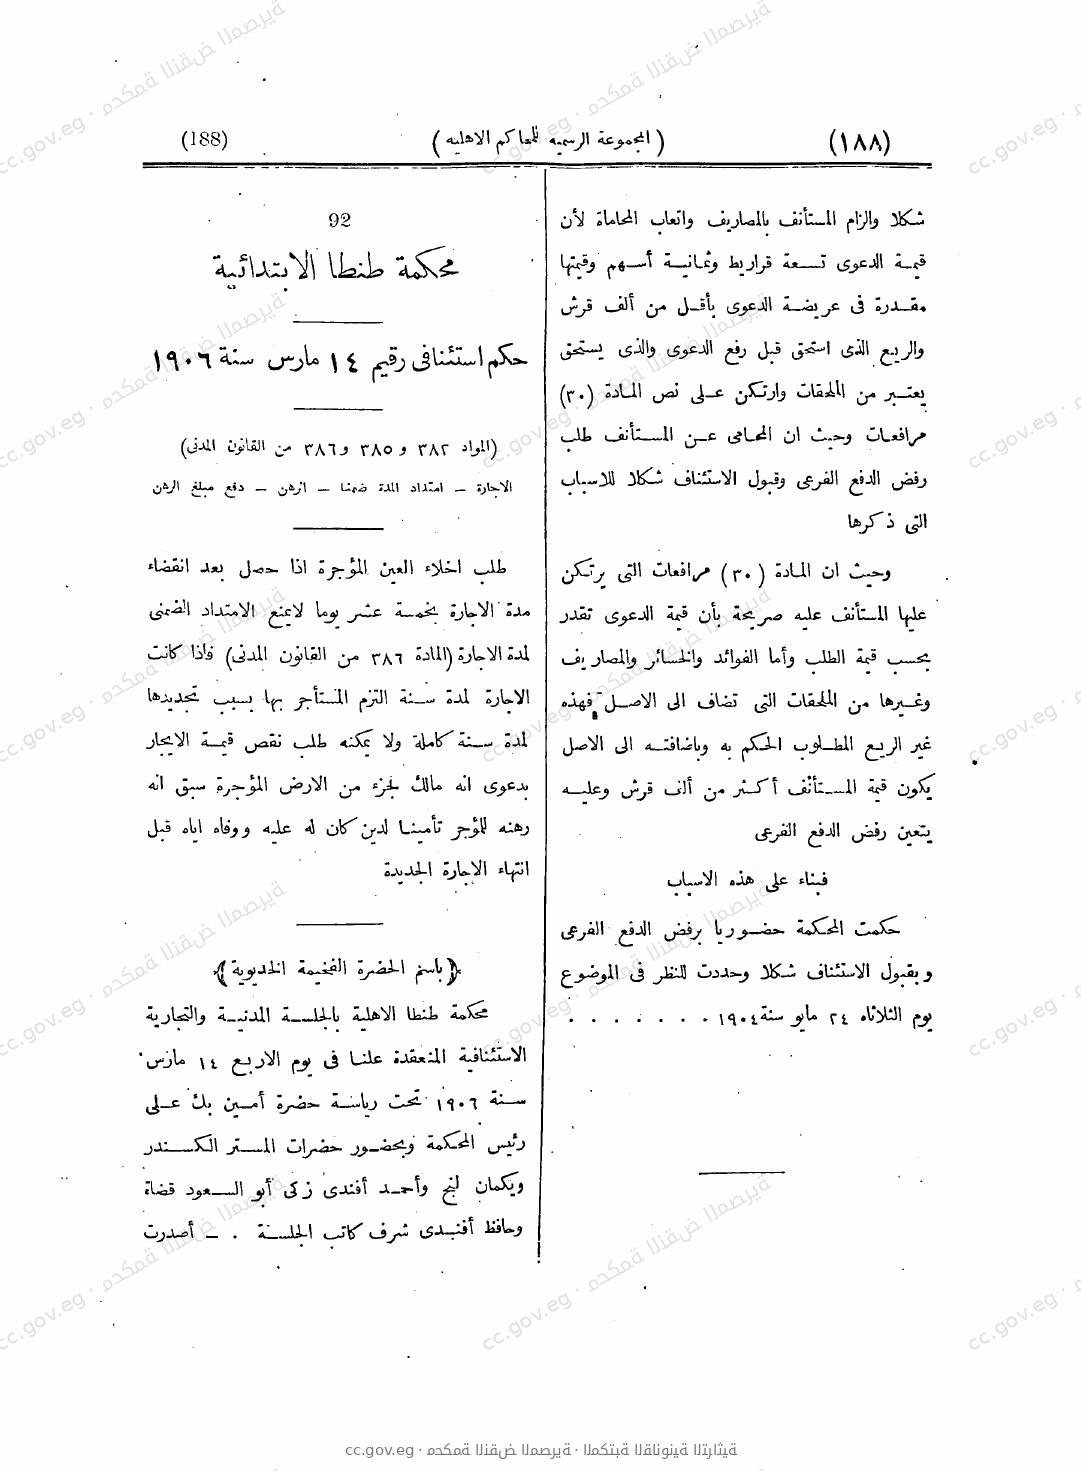 (١٨٨) (المجموعة الرسمية للمحاكم الاهلية) (188)
شكلا والزام المستأنف بالمصاريف واتعاب المحاماة لأن
قيمة الدعوى تسعة قراريط وثمانية أسهم وقيمتها
مقدرة فى عريضة الدعوى بأقل من ألف قرش
والريع الذى استحق قبل رفع الدعوى والذى يستحق
يعتبر من الملحقات وارتكن على نص المادة (٣٠)
مرافعات وحيث ان المحامى عن المستأنف طلب
رفض الدفع الفرعى وقبول الاستئناف شكلا للاسباب
التى ذكرها
وحيث ان المادة (٣٠) مرافعات التى يرتكن
عليها المستأنف عليه صريحة بأن قيمة الدعوى تقدر
بحسب قيمة الطلب وأما الفوائد والخسائر والمصاريف
وغيرها من الملحقات التى تضاف الى الاصل فهذه
غير الريع المطلوب الحكم به وباضافته الى الاصل
يكون قيمة المستأنف أكثر من ألف قرش وعليه
يتعين رفض الدفع الفرعى
فبناء على هذه الاسباب
حكمت المحكمة حضوريا برفض الدفع الفرعى
وبقبول الاستئناف شكلا وحددت للنظر فى الموضوع
يوم الثلاثاء ٢٤ مايو سنة ١٩٠٤ . . . . . . .
92
محكمة طنطا الابتدائية
حكم استئنافى رقيم ١٤ مارس سنة ١٩٠٦
(المواد ٣٨٢ و ٣٨٥ و ٣٨٦ من القانون المدنى)
الاجارة – امتداد المدة ضمنا – الرهن – دفع مبلغ الرهن
طلب اخلاء العين المؤجرة اذا حصل بعد انقضاء
مدة الاجارة بخمسة عشر يوما لايمنع الامتداد الضمنى
لمدة الاجارة (المادة ٣٨٦ من القانون المدنى) فاذا كانت
الاجارة لمدة سنة التزم المستأجر بها بسبب تجديدها
لمدة سنة كاملة ولا يمكنه طلب نقص قيمة الايجار
بدعوى انه مالك لجزء من الارض المؤجرة سبق انه
رهنه للمؤجر تأمينا لدين كان له عليه ووفاه اياه قبل
انتهاء الاجارة الجديدة
﴿باسم الحضرة الفخيمة الخديوية﴾
محكمة طنطا الاهلية بالجلسة المدنية والتجارية
الاستئنافية المنعقدة علنا فى يوم الاربع ١٤ مارس
سنة ١٩٠٦ تحت رياسة حضرة أمين بك على
رئيس المحكمة وبحضور حضرات المستر الكسندر
ويكمان لنج وأحمد أفندى زكى أبو السعود قضاة
وحافظ أفندى شرف كاتب الجلسة . – أصدرت
cc.gov.eg · محكمة النقض المصرية · المكتبة القانونية التراثية